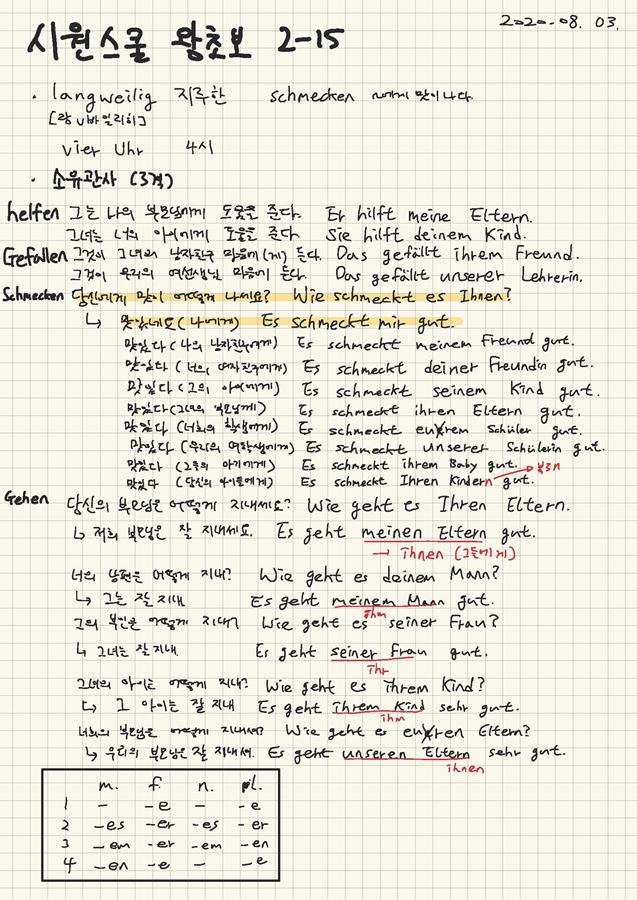 2020.08.03.
시원스쿨 왕초보 2-15
· langweilig 지루한 schmecken ~에게 맛이 나다.
[랑v바일리히]
vier Uhr 4시
· 소유관사 (3격)
helfen 그는 나의 부모님에게 도움을 준다. Er hilft meine Eltern.
그녀는 너의 아이에게 도움을 준다. Sie hilft deinem Kind.
Gefallen 그것이 그녀의 남자친구 마음에(게) 든다. Das gefällt ihrem Freund.
그것이 우리의 여선생님 마음에 든다. Das gefällt unserer Lehrerin.
Schmecken 당신에게 맛이 어떻게 나세요? Wie schmeckt es Ihnen?
↳ 맛있네요(나에게) Es schmeckt mir gut.
맛있다 (나의 남자친구에게) Es schmeckt meinem Freund gut.
맛있다 (너의 여자친구에게) Es schmeckt deiner Freundin gut.
맛있다 (그의 아이에게) Es schmeckt seinem Kind gut.
맛있다 (그녀의 부모님께) Es schmeckt ihren Eltern gut.
맛있다 (너희의 학생에게) Es schmeckt eurem Schüler gut.
맛있다 (우리의 여학생에게) Es schmeckt unserer Schülerin gut.
맛있다 (그들의 아기에게) Es schmeckt ihrem Baby gut. 복3n
맛있다 (당신의 아이들에게) Es schmeckt Ihren Kindern gut.
Gehen 당신의 부모님은 어떻게 지내세요? Wie geht es Ihren Eltern.
↳ 저희 부모님은 잘 지내세요. Es geht meinen Eltern gut.
→ ihnen (그들에게)
너의 남편은 어떻게 지내? Wie geht es deinem Mann?
↳ 그는 잘 지내 Es geht meinem Mann gut.
ihm
그의 부인은 어떻게 지내? Wie geht es seiner Frau?
↳ 그녀는 잘 지내 Es geht seiner Frau gut.
ihr
그녀의 아이는 어떻게 지내? Wie geht es ihrem Kind?
↳ 그 아이는 잘 지내 Es geht ihrem Kind sehr gut.
ihm
너희의 부모님은 어떻게 지내셔? Wie geht es euren Eltern?
↳ 우리의 부모님은 잘 지내셔. Es geht unseren Eltern sehr gut.
ihnen
m. f. n. pl.
1 - -e - -e
2 -es -er -es -er
3 -em -er -em -en
4 -en -e - -e